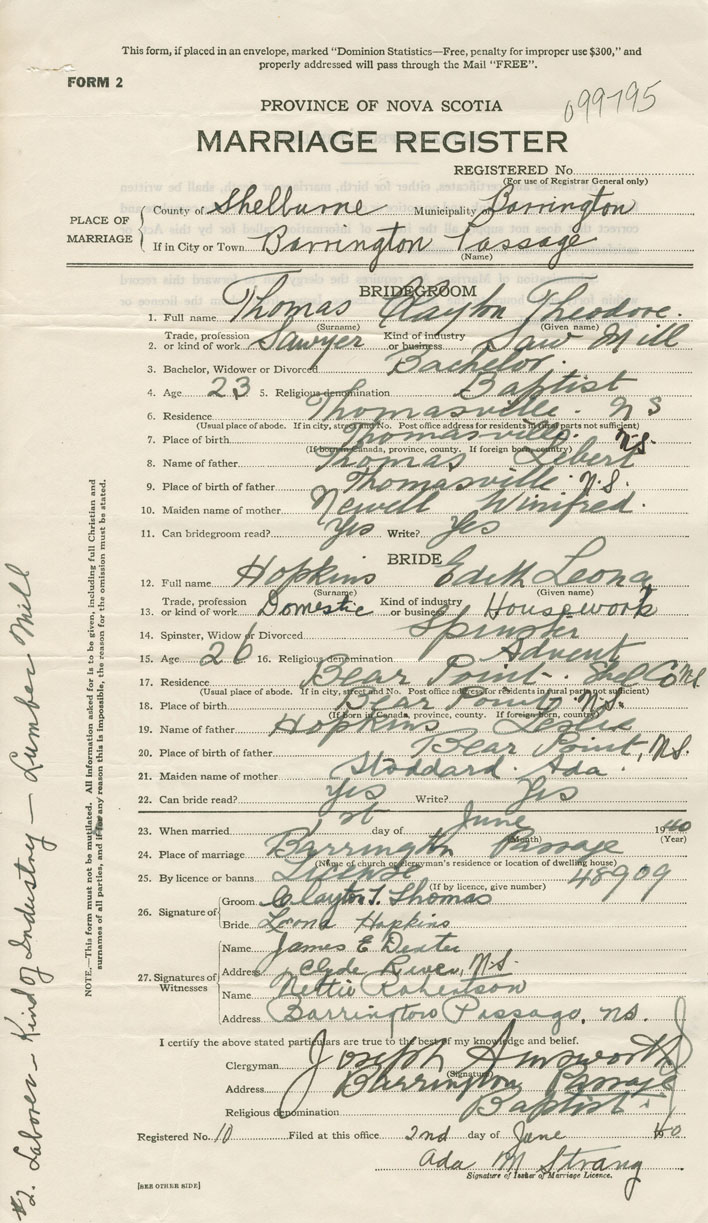 This form, if placed in an envelope, marked "Dominion Statistics—Free, penalty for improper use $300," and
properly addressed will pass through the Mail "FREE".
FORM 2
099795
PROVINCE OF NOVA SCOTIA
MARRIAGE REGISTER
REGISTERED No.
(For use of Registrar General only)
PLACE OF MARRIAGE
County of Shelburne Municipality of Barrington
If in City or Town Barrington Passage
(Name)
BRIDEGROOM
1. Full name Thomas Clayton Theodore.
(Surname) (Given name)
2. Trade, profession or kind of work Sawyer Kind of industry or business Saw Mill
3. Bachelor, Widower or Divorced Bachelor.
4. Age 23 5. Religious denomination Baptist
6. Residence Thomasville. N S
(Usual place of abode. If in city, street and No. Post office address for residents in rural parts not sufficient)
7. Place of birth Thomasville. N.S.
(If born in Canada, province, county. If foreign born, country)
8. Name of father Thomas Lebert
9. Place of birth of father Thomasville. N.S.
10. Maiden name of mother Newell Winifred.
11. Can bridegroom read? Yes Write? Yes
BRIDE
12. Full name Hopkins Edith Leona
(Surname) (Given name)
13. Trade, profession or kind of work Domestic Kind of industry or business Housework
14. Spinster, Widow or Divorced Spinster
15. Age 26 16. Religious denomination Advent
17. Residence Bear Point.
(Usual place of abode. If in city, street and No. Post office address for residents in rural parts not sufficient)
18. Place of birth Bear Point. N.S.
(If born in Canada, province, county. If foreign born, country)
19. Name of father Hopkins
20. Place of birth of father Bear Point, N.S.
21. Maiden name of mother Stoddard. Ada.
22. Can bride read? Yes Write? Yes
23. When married 1st day of June 1940
(Month) (Year)
24. Place of marriage Barrington Passage
(Name of church or clergyman's residence or location of dwelling house)
25. By licence or banns License 48909
(If by licence, give number)
26. Signature of
Groom Clayton T. Thomas
Bride Leona Hopkins
27. Signatures of Witnesses
Name James E Dexter
Address Clyde River, N.S.
Name Nettie Robertson
Address Barrington Passage, N.S.
I certify the above stated particulars are true to the best of my knowledge and belief.
Clergyman Joseph Ainsworth
(Signature)
Address Barrington Passage
Religious denomination Baptist
Registered No. 10 Filed at this office 2nd day of June 1940
Ada M Strang
Signature of Issuer of Marriage Licence.
[SEE OTHER SIDE]
NOTE.—This form must not be mutilated. All information asked for is to be given, including full Christian and
surnames of all parties, and if for any reason this is impossible, the reason for the omission must be stated.
#2. Laborer — Kind of Industry — Lumber Mill